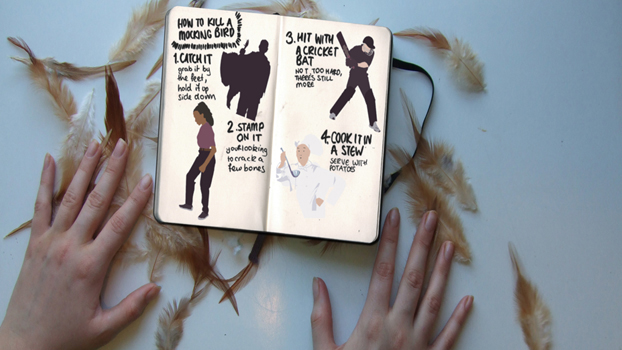 HOW TO KILL A
MOCKING BIRD
1. CATCH IT
grab it by
the feet,
hold it up
side down
2. STAMP
ON IT
your looking
to crack a
few bones
3. HIT WITH
A CRICKET
BAT
NOT TOO HARD,
THERE'S STILL
MORE
4. COOK IT IN
A STEW
SERVE WITH
POTATOES